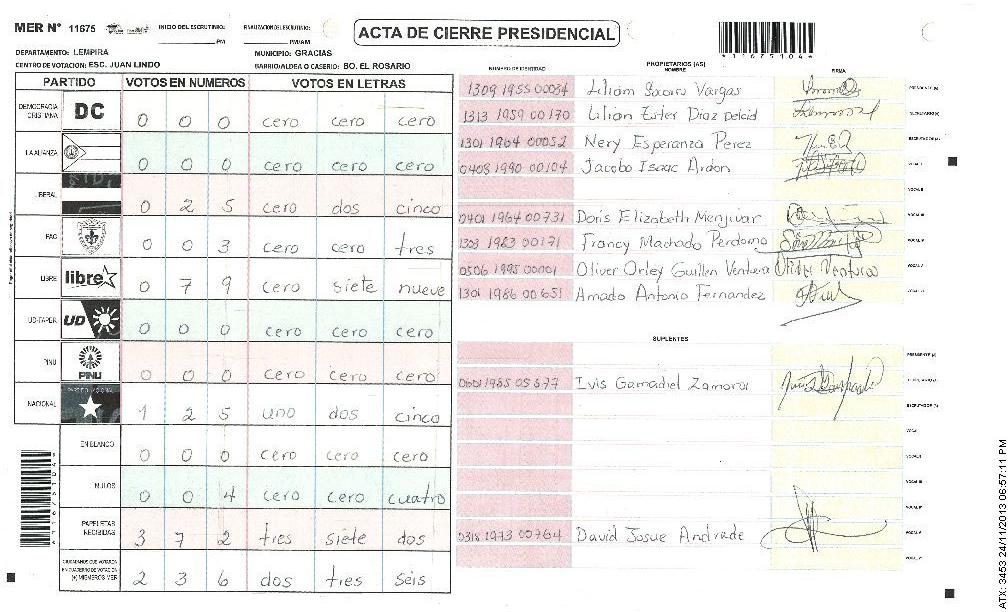 MER N° 11675
INICIO DEL ESCRUTINIO:
PM
FINALIZACION DEL ESCRUTINIO:
PM/AM
ACTA DE CIERRE PRESIDENCIAL
11675104
DEPARTAMENTO: LEMPIRA
MUNICIPIO: GRACIAS
CENTRO DE VOTACION: ESC. JUAN LINDO
BARRIO/ALDEA O CASERIO: BO. EL ROSARIO
PARTIDO VOTOS EN NUMEROS VOTOS EN LETRAS
DEMOCRACIA CRISTIANA DC 0 0 0 cero cero cero
LA ALIANZA 0 0 0 cero cero cero
LIBERAL 0 2 5 cero dos cinco
PAC 0 0 3 cero cero tres
LIBRE libre 0 7 9 cero siete nueve
UD-FAPER UD 0 0 0 cero cero cero
PINU PINU 0 0 0 cero cero cero
NACIONAL 1 2 5 uno dos cinco
EN BLANCO 0 0 0 cero cero cero
NULOS 0 0 4 cero cero cuatro
PAPELETAS RECIBIDAS 3 7 2 tres siete dos
CIUDADANOS QUE VOTARON EN CUADERNO DE VOTACION (+) MIEMBROS MER 2 3 6 dos tres seis
NUMERO DE IDENTIDAD
PROPIETARIOS (AS)
NOMBRE
FIRMA
1309 1955 00084 Lilian Vargas
1313 1959 00170 Lilian Ester Diaz Delcid
1301 1964 00052 Nery Esperanza Perez
0408 1990 00104 Jacobo Isaac Ardon
0401 1964 00731 Doris Elizabeth Menjivar
1303 1983 00171 Francy Machado Perdomo
0506 1995 00001 Oliver Orley Guillen Ventura
1301 1986 00651 Amado Antonio Fernandez
SUPLENTES
0601 1985 05877 Ivis Gamadiel Zamora
0318 1973 00764 David Josue Andrade
ATX: 3453 24/11/2013 06:57:11 PM